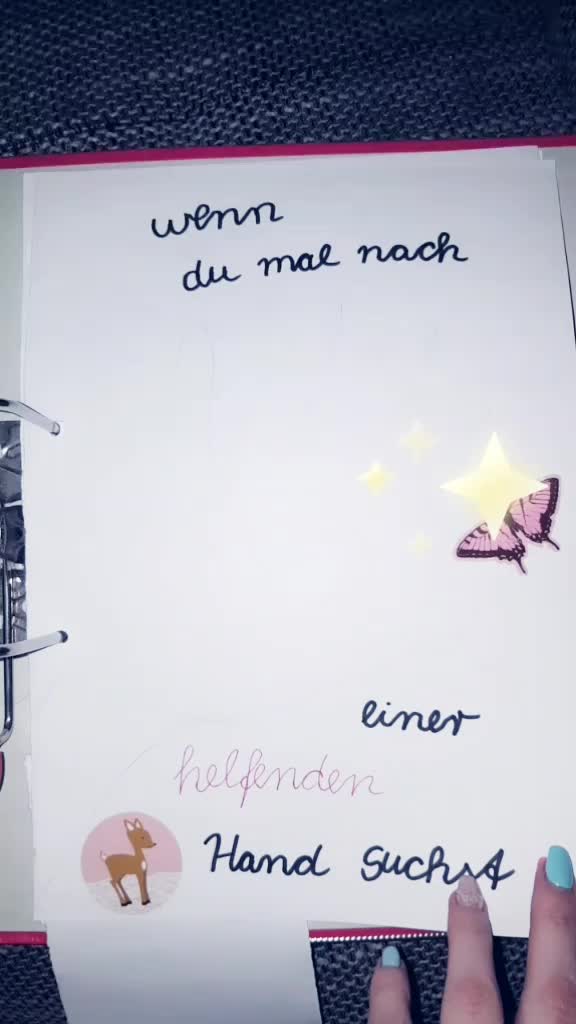 wenn
du mal nach
einer
helfenden
Hand suchst